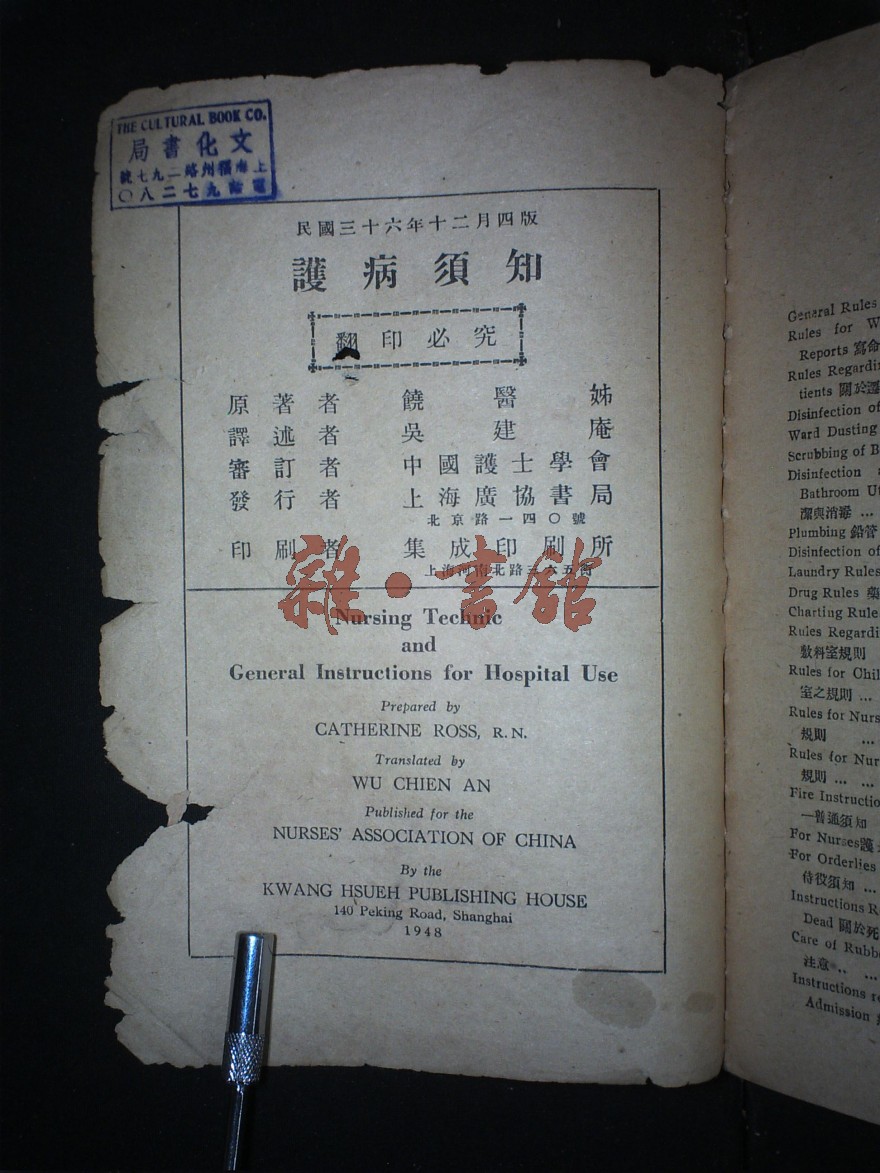 THE CULTURAL BOOK CO.
文化書局
上海福州路二九七號
電話九七二八〇
民國三十六年十二月四版
護病須知
翻印必究
原著者 饒醫姊
譯述者 吳建庵
審訂者 中國護士學會
發行者 上海廣協書局
北京路一四〇號
印刷者 集成印刷所
上海河南北路三六五衖
雜·書館
Nursing Technic
and
General Instructions for Hospital Use
Prepared by
CATHERINE ROSS, R.N.
Translated by
WU CHIEN AN
Published for the
NURSES' ASSOCIATION OF CHINA
By the
KWANG HSUEH PUBLISHING HOUSE
140 Peking Road, Shanghai
1948
General Rules
Rules for W
Reports 寫命
Rules Regardin
tients 關於
Disinfection of
Ward Dusting
Scrubbing of B
Disinfection
Bathroom Ut
潔與消毒 ...
Plumbing 鉛管
Disinfection of
Laundry Rules
Drug Rules 藥
Charting Rule
Rules Regardi
敷料室規則
Rules for Chil
室之規則 ...
Rules for Nurs
規則 ...
Rules for Nur
規則 ... ...
Fire Instructio
一普通須知
For Nurses護
For Orderlies
侍役須知 ...
Instructions R
Dead 關於死
Care of Rubb
注意 ... ...
Instructions re
Admission